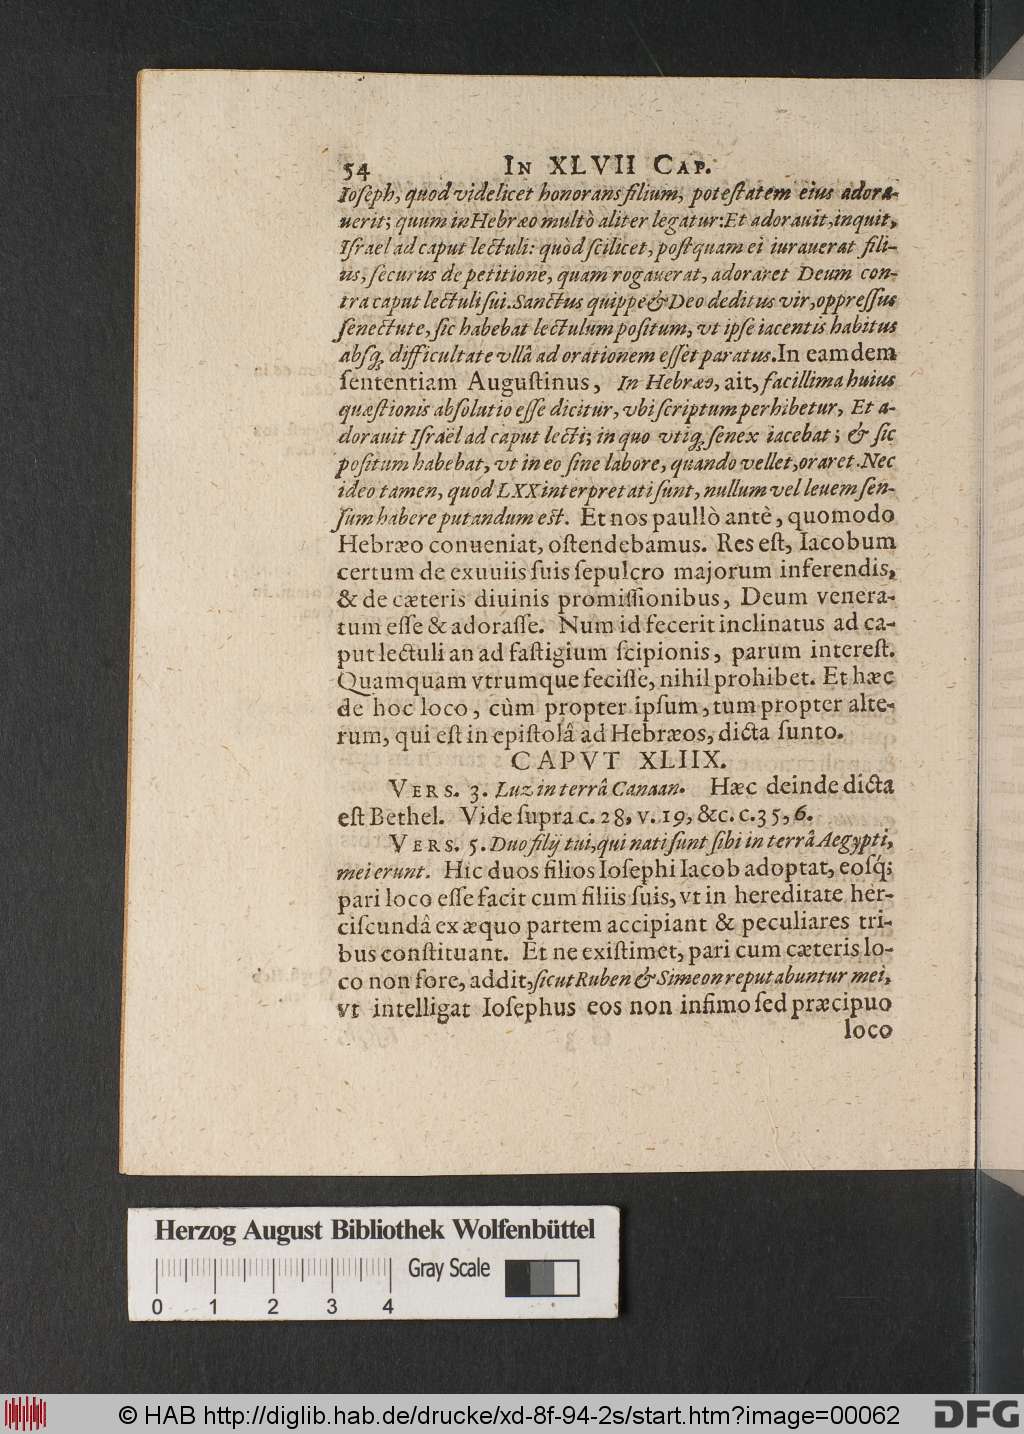 54 IN XLVII CAP.
Ioſeph, quod videlicet honorans filium, poteſtatem eius adora-
uerit; quum in Hebræo multò aliter legatur: Et adorauit, inquit,
Iſrael ad caput lectuli: quòd ſcilicet, poſtquam ei iurauerat fili-
us, ſecurus de petitione, quam rogauerat, adoraret Deum con-
tra caput lectuli ſui. Sanctus quippe & Deo deditus vir, oppreſſus
ſenectute, ſic habebat lectulum poſitum, vt ipſe iacentis habitus
abſq; difficultate vllâ ad orationem eſſet paratus. In eamdem
ſententiam Auguſtinus, In Hebræo, ait, facillima huius
quæſtionis abſolutio eſſe dicitur, vbi ſcriptum perhibetur, Et a-
dorauit Iſraël ad caput lecti; in quo vtiq; ſenex iacebat; & ſic
poſitum habebat, vt in eo ſine labore, quando vellet, oraret. Nec
ideo tamen, quod LXX interpretati ſunt, nullum vel leuem ſen-
ſum habere putandum eſt. Et nos paullò antè, quomodo
Hebræo conueniat, oſtendebamus. Res eſt, Iacobum
certum de exuuiis ſuis ſepulcro majorum inferendis,
& de cæteris diuinis promiſſionibus, Deum venera-
tum eſſe & adoraſſe. Num id fecerit inclinatus ad ca-
put lectuli an ad faſtigium ſcipionis, parum intereſt.
Quamquam vtrumque feciſſe, nihil prohibet. Et hæc
de hoc loco, cùm propter ipſum, tum propter alte-
rum, qui eſt in epiſtolâ ad Hebræos, dicta ſunto.
CAPVT XLIIX.
VERS. 3. Luz in terrâ Canaan. Hæc deinde dicta
eſt Bethel. Vide ſupra c. 28, v. 19, &c. c. 35, 6.
VERS. 5. Duo filij tui, qui nati ſunt ſibi in terrâ Aegypti,
mei erunt. Hic duos filios Ioſephi Iacob adoptat, eoſq́;
pari loco eſſe facit cum filiis ſuis, vt in hereditate her-
ciſcundâ ex æquo partem accipiant & peculiares tri-
bus conſtituant. Et ne exiſtimet, pari cum cæteris lo-
co non fore, addit, ſicut Ruben & Simeon reputabuntur mei,
vt intelligat Ioſephus eos non infimo ſed præcipuo
loco
Herzog August Bibliothek Wolfenbüttel
Gray Scale
0 1 2 3 4
© HAB http://diglib.hab.de/drucke/xd-8f-94-2s/start.htm?image=00062
DFG